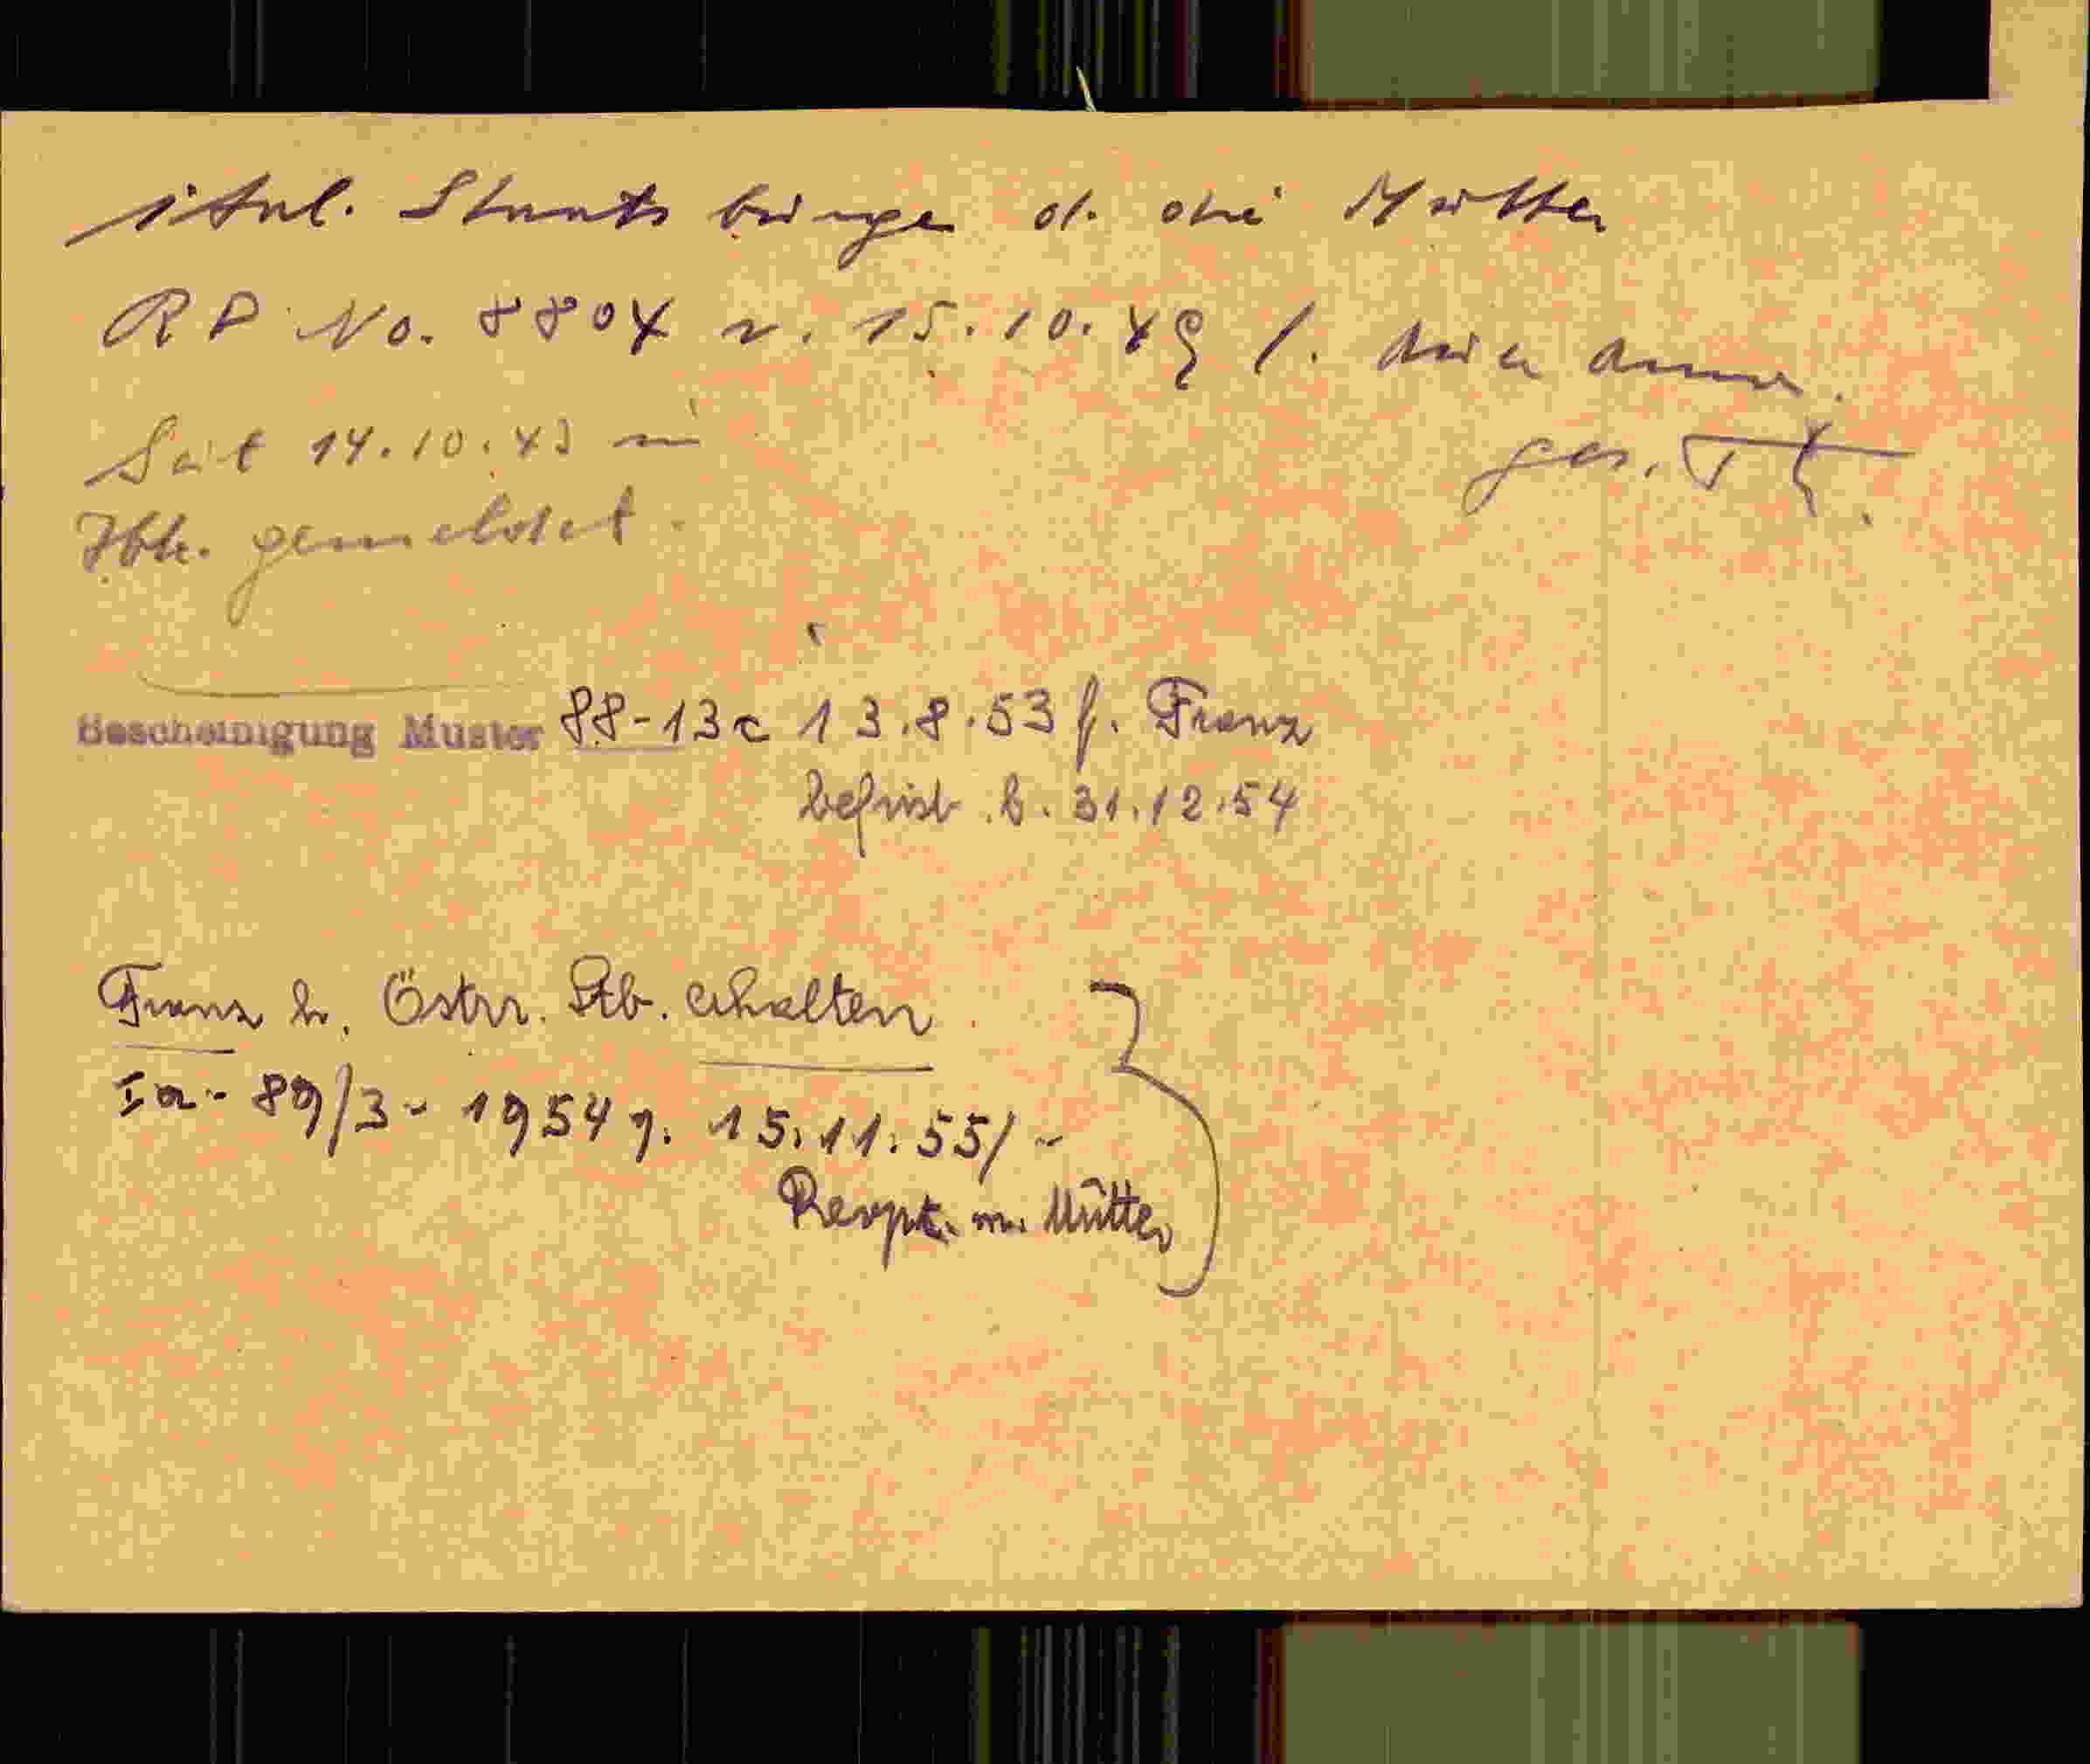 ital. Staatsbürger d. die Mutter
RP No. 8804 v. 15.10.49 f.
ges.
Seit 14.10.43 in
Ibk. gemeldet.
Bescheinigung Muster 88-13c 13.8.53 f. Franz
befrist. b. 31.12.54
Franz h. Östrr. Stb. erhalten
Ia- 89/3- 1954 v. 15.11.55/-
m. Mutter